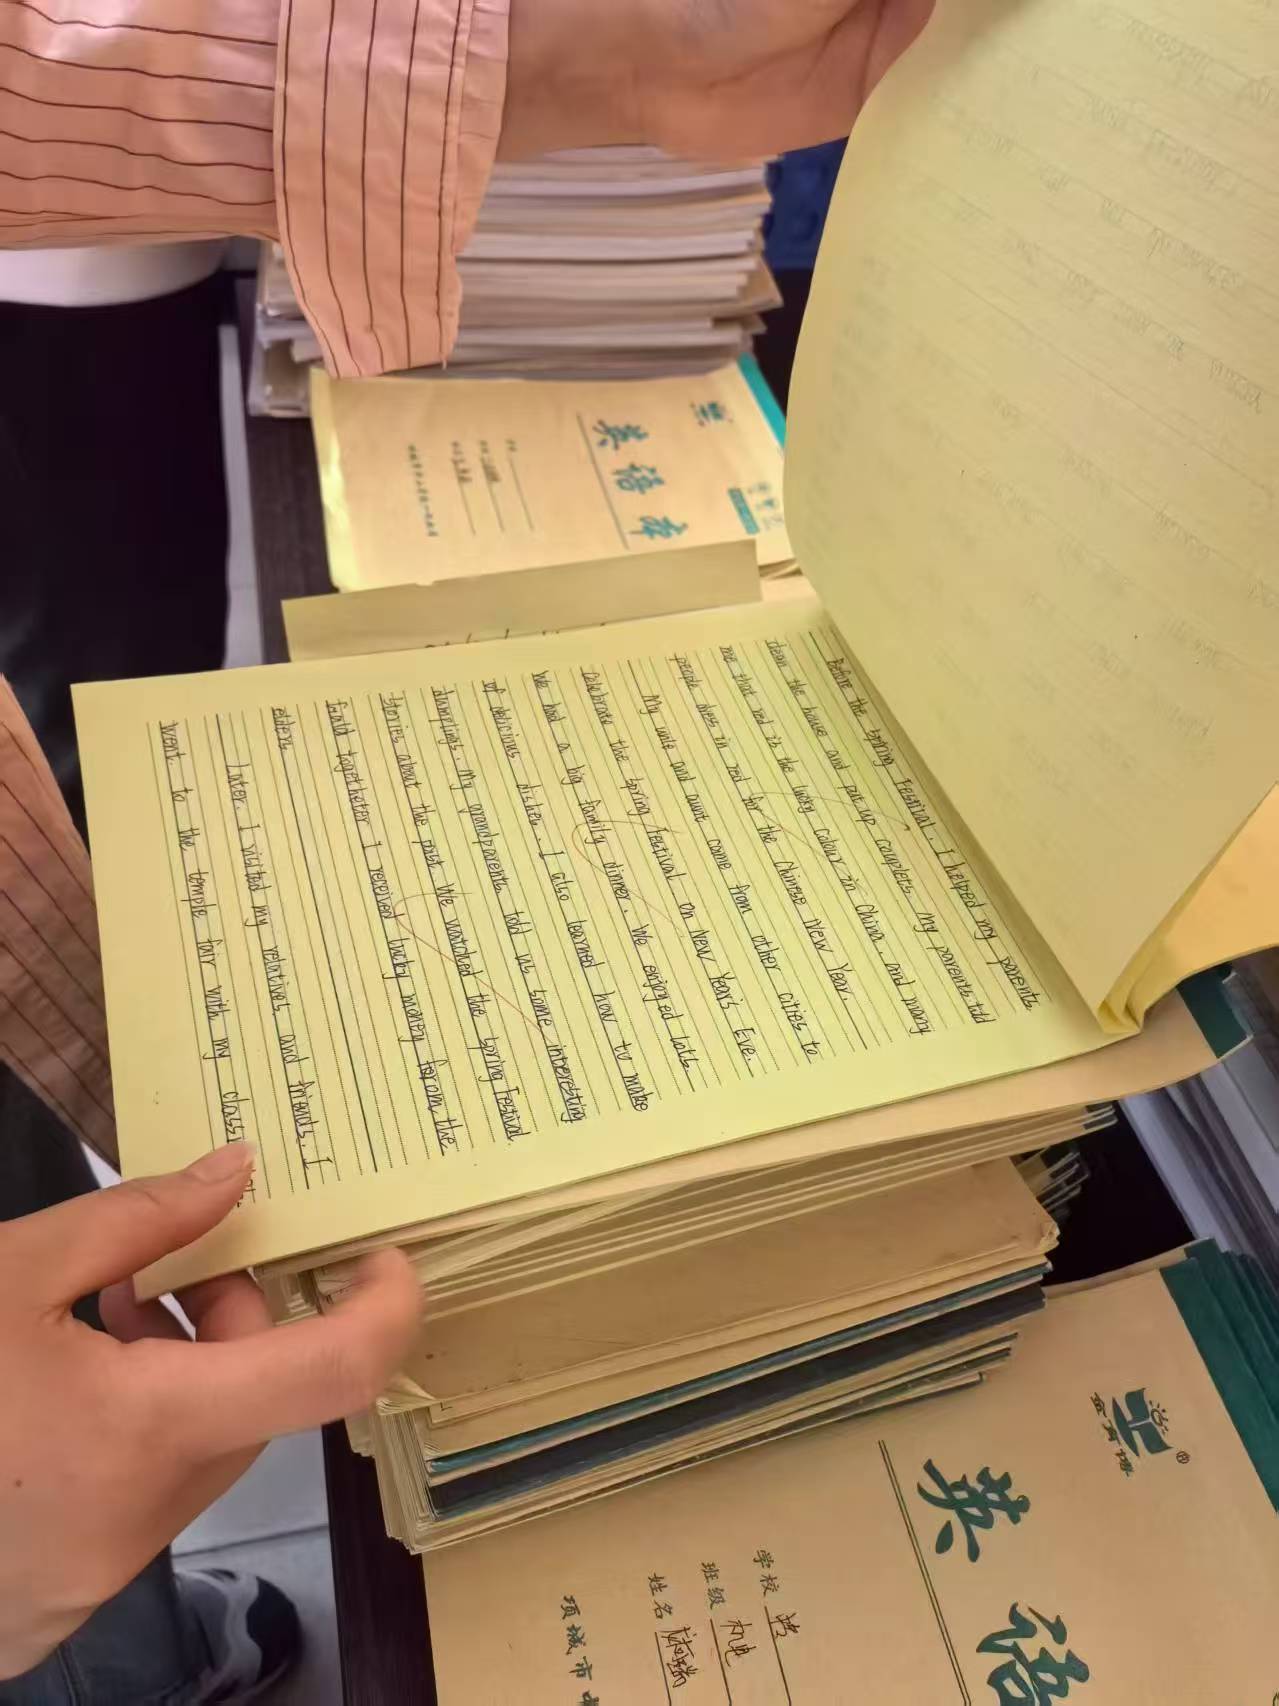 Before the Spring Festival. I helped my parents
clean the house and put up couplets. My parents told
me that red is the lucky colour in China. and many
people dress in red for the Chinese New Year.
My uncle and aunt come from other cities to
celebrate the Spring Festival on New Year's Eve.
We had a big family dinner. We enjoyed lots
of delicious dishes. I also learned how to make
dumplings. My grandparents told us some interesting
stories about the past. We watched the Spring Festival
Gald togetheter I received lucky money forom the
elders
Later. I visited my relatives and friends. I
went to the temple fair with my
英语本
英语
学校
班级 机电
姓名
项城市